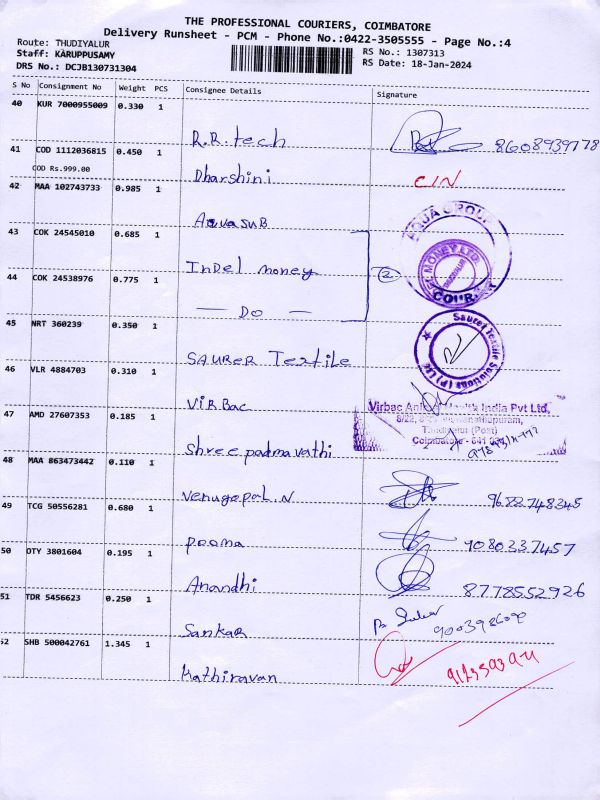 THE PROFESSIONAL COURIERS, COIMBATORE
Delivery Runsheet - PCM - Phone No.:0422-3505555 - Page No.:4
Route: THUDIYALUR
RS No.: 1307313
Staff: KARUPPUSAMY
RS Date: 18-Jan-2024
DRS No.: DCJB130731304
S No Consignment No Weight PCS Consignee Details Signature
40 KUR 7000955009 0.330 1
R.R. tech 8608939778
41 COD 1112036815 0.450 1
COD Rs.999.00
Dharshini
42 MAA 102743733 0.985 1
AQUA GROUP
43 COK 24545010 0.685 1
Indel money 2
44 COK 24538976 0.775 1
— DO —
45 NRT 360239 0.350 1
SAURER Textile
Saurer Textile Solutions (P) Ltd
46 VLR 4884703 0.310 1
VIRBac
Virbac Animal Health India Pvt Ltd,
Thudiyalur (Post)
Coimbatore - 641 034
47 AMD 27607353 0.185 1
Shree padmavathi
48 MAA 863473442 0.110 1
Venugopal.N 9688748345
49 TCG 50556281 0.680 1
pooma 9080337457
50 OTY 3801604 0.195 1
Anandhi 8778552926
51 TDR 5456623 0.250 1
Sankar
52 SHB 500042761 1.345 1
Kathiravan